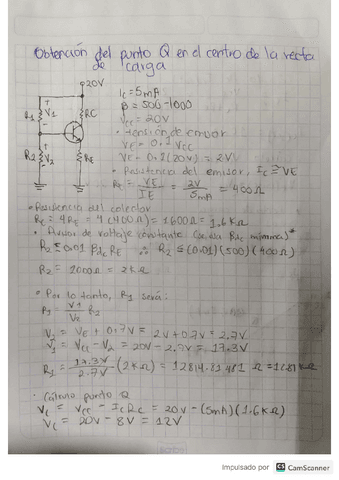 Obtención del punto Q en el centro de la recta
de carga
20V
R1
V1
RC
R2
V2
RE
Ic = 5mA
B = 500-1000
Vcc = 20V
• tensión de emisor
VE = 0.1 Vcc
VE = 0.1(20V) = 2V
• Resistencia del emisor, Ic ≅ VE
RE = VE/IE = 2V/5mA = 400Ω
• Resistencia del colector
Rc = 4RE = 4(400Ω) = 1600Ω = 1.6KΩ
• Divisor de voltaje constante
R2 ≤ 0.01 βdc RE ∴ R2 ≤ (0.01)(500)(400Ω)
R2 = 2000Ω = 2KΩ
• Por lo tanto, R1 será:
R1 = V1/V2 R2
V2 = VE + 0.7V = 2V + 0.7V = 2.7V
V1 = Vcc - V2 = 20V - 2.7V = 17.3V
R1 = 17.3V/2.7V (2KΩ) = 12814.81481 Ω
• Cálculo punto Q
Vc = Vcc - IcRc = 20V - (5mA)(1.6KΩ)
Vc = 20V - 8V = 12V
Impulsado por CS CamScanner